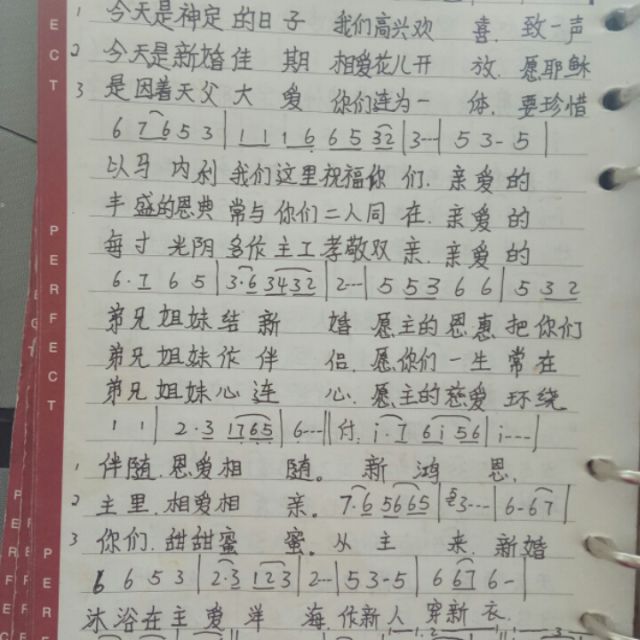 1 今天是神定的日子 我们高兴欢 喜. 致一声
2 今天是新婚佳 期 相爱花儿开 放. 愿耶稣
3 是因着天父大 爱 你们连为一 体. 要珍惜
6 7 6 5 3 | 1 1 1 6 6 5 3 2 | 3-- | 5 3- 5 |
以马 内利 我们这里祝福你 们. 亲爱的
丰盛的恩典 常与你们二人同 在. 亲爱的
每寸 光阴 多作主工孝敬双 亲. 亲爱的
6· 1 6 5 | 3·6 3432 | 2--- | 5 5 5 3 6 6 | 5 3 2
弟兄姐妹结新 婚 愿主的恩惠把你们
弟兄姐妹作伴 侣. 愿你们一生常在
弟兄姐妹心连 心. 愿主的慈爱环绕
1 1 | 2·3 1765 | 6--- || 付. i·7 6i56 | i--- |
1 伴随.恩爱相 随。 新 鸿 恩.
2 主里.相爱相 亲。 7·6 5665 | 3--- | 6-67 |
3 你们.甜甜蜜 蜜。从 主 来. 新婚
6 6 5 3 | 2·3 123 | 2-- | 5 3-5 | 6 67 6- |
沐浴在主 爱 洋 海.作新人 穿新 衣.
PERFECT
PERFECT
PERFECT